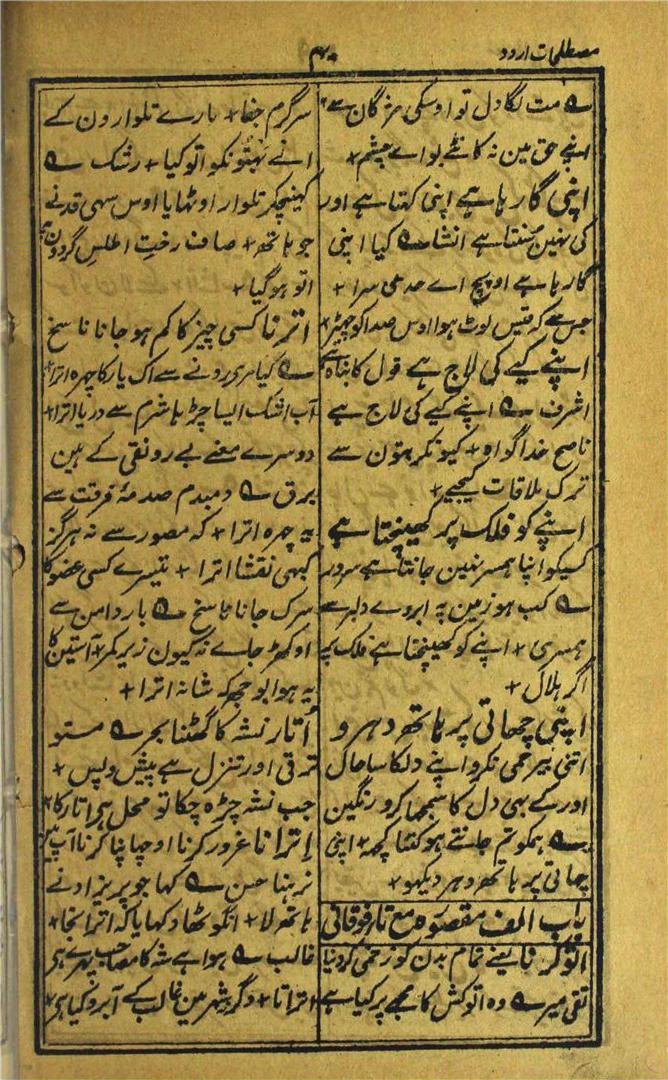 مصطلحات اردو
۴۰
ے مت لگا دل تو اوسکی مژگان سے
اپنے حق مین نہ کانٹے بو اے چشم +
اپنی گا رہا ہے اپنی کہتا ہے اور
کی نہین سنتا ہے انشا ے کیا اپنی
گا رہا ہے او پیچ اے مدعی سرا +
جس سے کہ قیس لوٹ ہوا اوس صدا کو چھیڑ
اپنے کیے کی لاج ہے قول کا نباہ ہے
اشرف ے اپنے کیے کی لاج ہے
ناصح خدا گواہ + کیونکر بتون سے
ترک ملاقات کیجیے +
اپنے کو فلک پر کھینچتا ہے
کسیکو اپنا ہمسر نہین جانتا ہے سرور
ے کب ہو زمین پہ ابروے دلبر سے
ہمسری + اپنے کو کھینچتا ہے فلک پر
اگر ہلال +
اپنی چھاتی پر ہاتھ دہرو
اتنی بیرحمی نکرو اپنے دلکا سا حال
اور کے بھی دل کا سمجھا کرو رنگین
ے ہمکو تم جانتے ہو کتنا کچھ + اپنی
چھاتی پر ہاتھ دہر دیکھو +
باب الف مقصورہ مع تاء فوقانی
اتو کرنا یعنے تمام بدن کو زخمی کر دینا
تقی میر ے وہ اتو کش کا مجھے پر کیا ہے
سرگرم جفا + مارے تلوارون کے
انے بہتونکو اتو کیا + رشک ے
کھینچکر تلوار اوٹھایا اوس سہی قد نے
جو ہاتھ + صاف رخت اطلس گردون
اتو ہو گیا +
اترنا کسی چیز کا کم ہو جانا ناسخ
ے کیا مری رونے سے اک یار کا چہرہ اترا
آب اشک ایسا چڑہا شرم سے دریا اترا +
دوسرے معنے بے رونقی کے ہین
برق ے دمبدم صدمۂ فرقت سے
یہ چہرہ اترا + کہ مصور سے نہ ہرگز
کبھی نقشا اترا + تیسرے کسی عضو کا
سرک جانا ناسخ ے بار دامن سے
اوکھڑ جاے نہ کیون زیر کمر + آستین کا
یہ ہوا بوجھ کہ شانہ اترا +
اُتار نشہ کا گھٹنا بحر ے مستو
ترقی اور تنزل ہے پیش و پس +
جب نشہ چڑہ چکا تو محل ہی اتار کا
اِترانا غرور کرنا اوچاپنا کرنا آپ مین
نرہنا حسن ے کہا جو پریزاد نے
ہاتھ لا + انگوٹھا دکھایا کہ اترا نجا +
غالب ے ہوا ہے شہ کا مصاحب پھرے ہی
اتراتا + وگرنہ شہر مین غالب کے آبرو کیا ہی